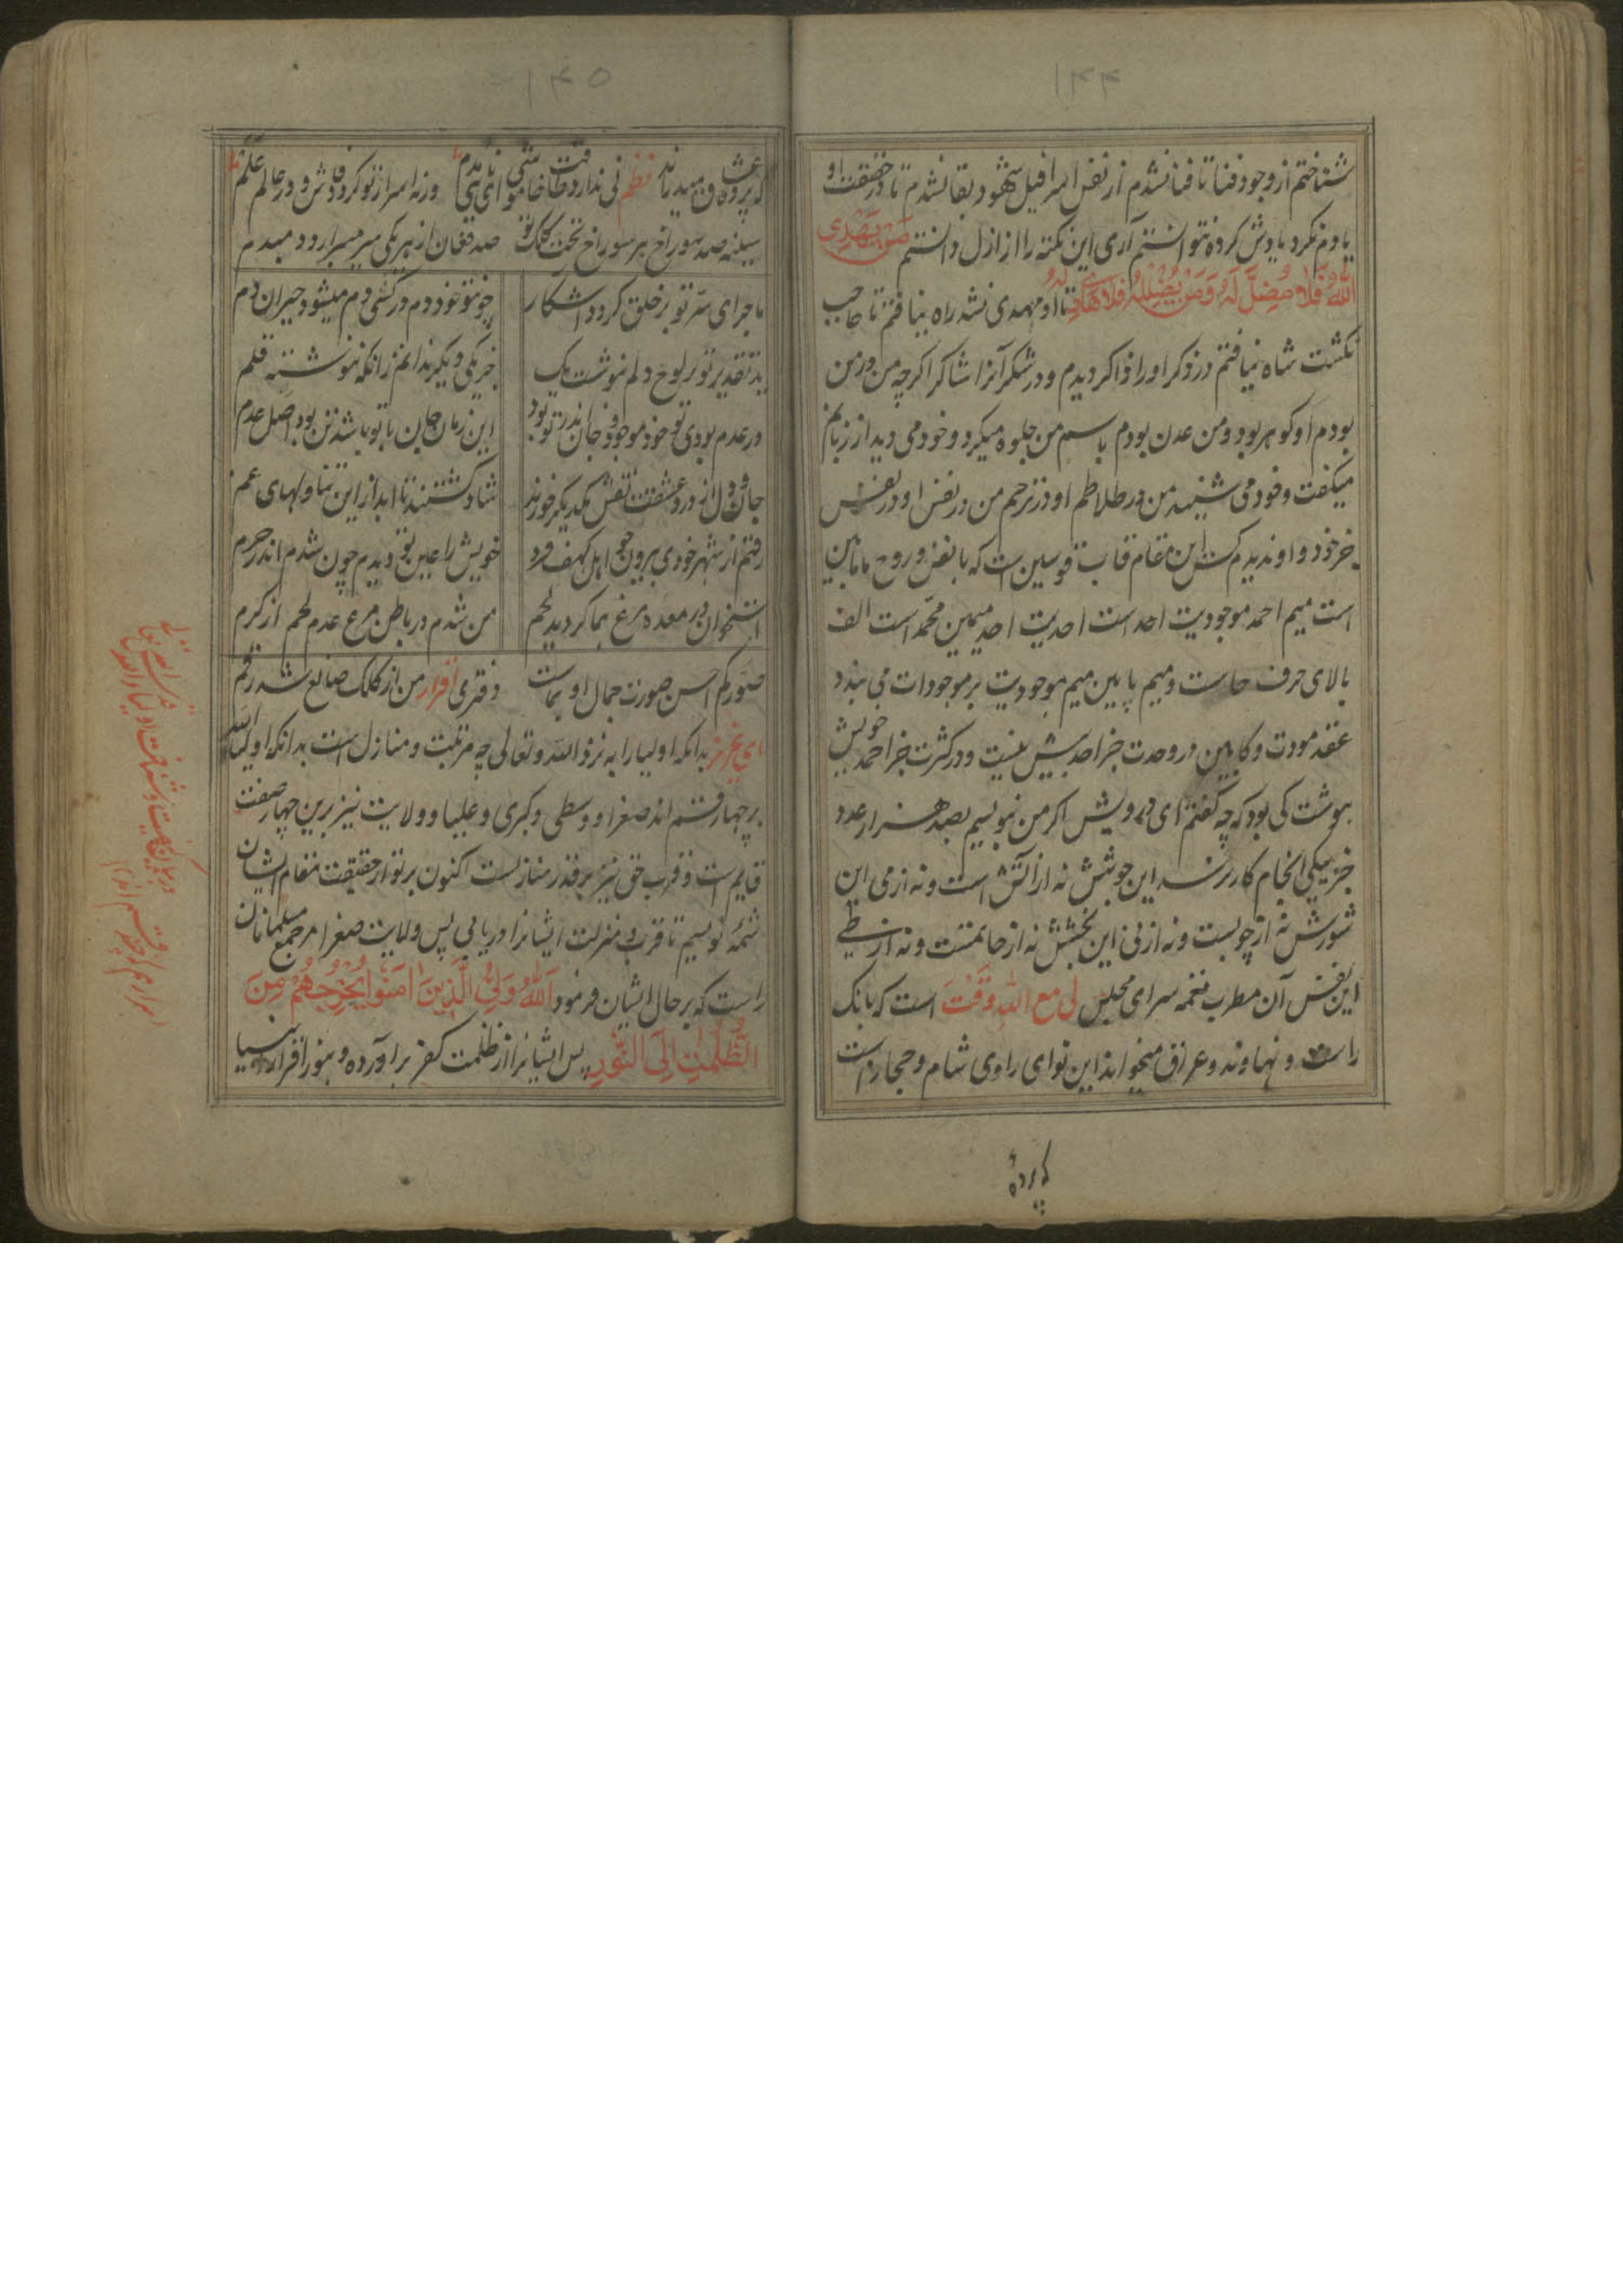 ۱۴۴
شناختم از وجود فنا تا فنا نشدم از نفس اسرافیل شهود بقا نشدم تا در حقیقت او
یادم نکرد یادش کرده نتوانستم آری این نکته را از ازل دانستم مَنْ یَهْدِی
اللهُ فَلا مُضِلَّ لَهُ وَمَنْ یُضْلِلْهُ فَلا هَادِیَ لَهُ تا او مهدی نشد راه نیافتم تا حاجب
نگشت شاه نیافتم در ذکر او را ذاکر دیدم و در شکر آنرا شاکر اگرچه من در من
بودم او گوهر بود و من عدن بودم باسم من جلوه میکرد و خود می دید از زبانم
میگفت و خود می شنید من در طلاطم او در ترحم من در نفس او در نفس
جز خود و او ندیدم کس این مقام قاب قوسین است که با نفس و روح ما بین
است میم احمد موجودیت احد است احدیت احد میمین محمد است الف
بالای حرف حاست و میم پایین میم موجودیت بر موجودات می بندد
عقد مودت و کابین در وحدت جز احد بیش نیست و در کثرت جز احمد خویش
بهوشت کی بود که چه گفتم ای درویش اگر من نبویسم بصد هزار عدد
جز بیکی انجام کار نرسد این جوشش نه از آتش است و نه از می این
شورش نه از چوبست و نه از نی این بخشش نه از حاتمست و نه از طے
این نفس آن مطرب نغمه سرای مجلس لی مع الله وَقْتَ است که بانک
راست و نهاوند و عراق میخواند این نوای راوی شام و حجاز است
که پرده
۱۴۵
که پرده عشاق میدراند نظم نی ندارد طاقت خاموشی ای نای بدم ورنه اسرار تو کرد فاش و در عالم علم
سینه صد سوراخ هر سوراخ تحت کلک تو صد فغان از هر یکی سر میبرارد دمبدم
ماجرای سر تو بر خلق گردد آشکار چونتو خود دم درکشی دم میشود حیران دم
ید تقدیر تو بر لوح دلم ننوشت یک جز یکی دیگر ندانم زانکه ننوشته قلم
در عدم بودی تو خود موجود جان نزد تو بود این زمان جان با تو باشد تن بود اصل عدم
جان و دل از درد عشقت نقش یکدیگر خورند شاد گشتند تا ابد از این تناولهای غم
رفتم از شهر خودی بیرون چو اهل کهف فرد خویش را عین تو دیدم چون شدم اندر حرم
استخوان در معده مرغ هما گردید لحم من شدم در باطن مرغ عدم لحم از کرم
صَوَّرکم احسن صورت جمال او بماست دفتری اقرار من از کلک صانع شد رقم
ای عزیز بدانکه اولیا را به نزد الله و تعالی چه مرتبت و منازل است بدانکه اولیاءالله
بر چهار قسم اند صغرا و وسطی و کبری و علیا و ولایت نیز برین چهار صفت
قایم است و قرب حق نیز بر قدر منازلست اکنون بر تو از حقیقت مقام ایشان
شمهٔ نویسیم تا قرب و منزلت ایشانرا دریابی پس ولایت صغرا مر جمیع مسلمانان
راست که بر حال ایشان فرمود اَللهُ وَلِیُّ الَّذِینَ اٰمَنُوا یُخْرِجُهُمْ مِنَ
الظُّلُمٰتِ اِلَی النُّورِ پس ایشانرا از ظلمت کفر برآورده و بنور اقرار